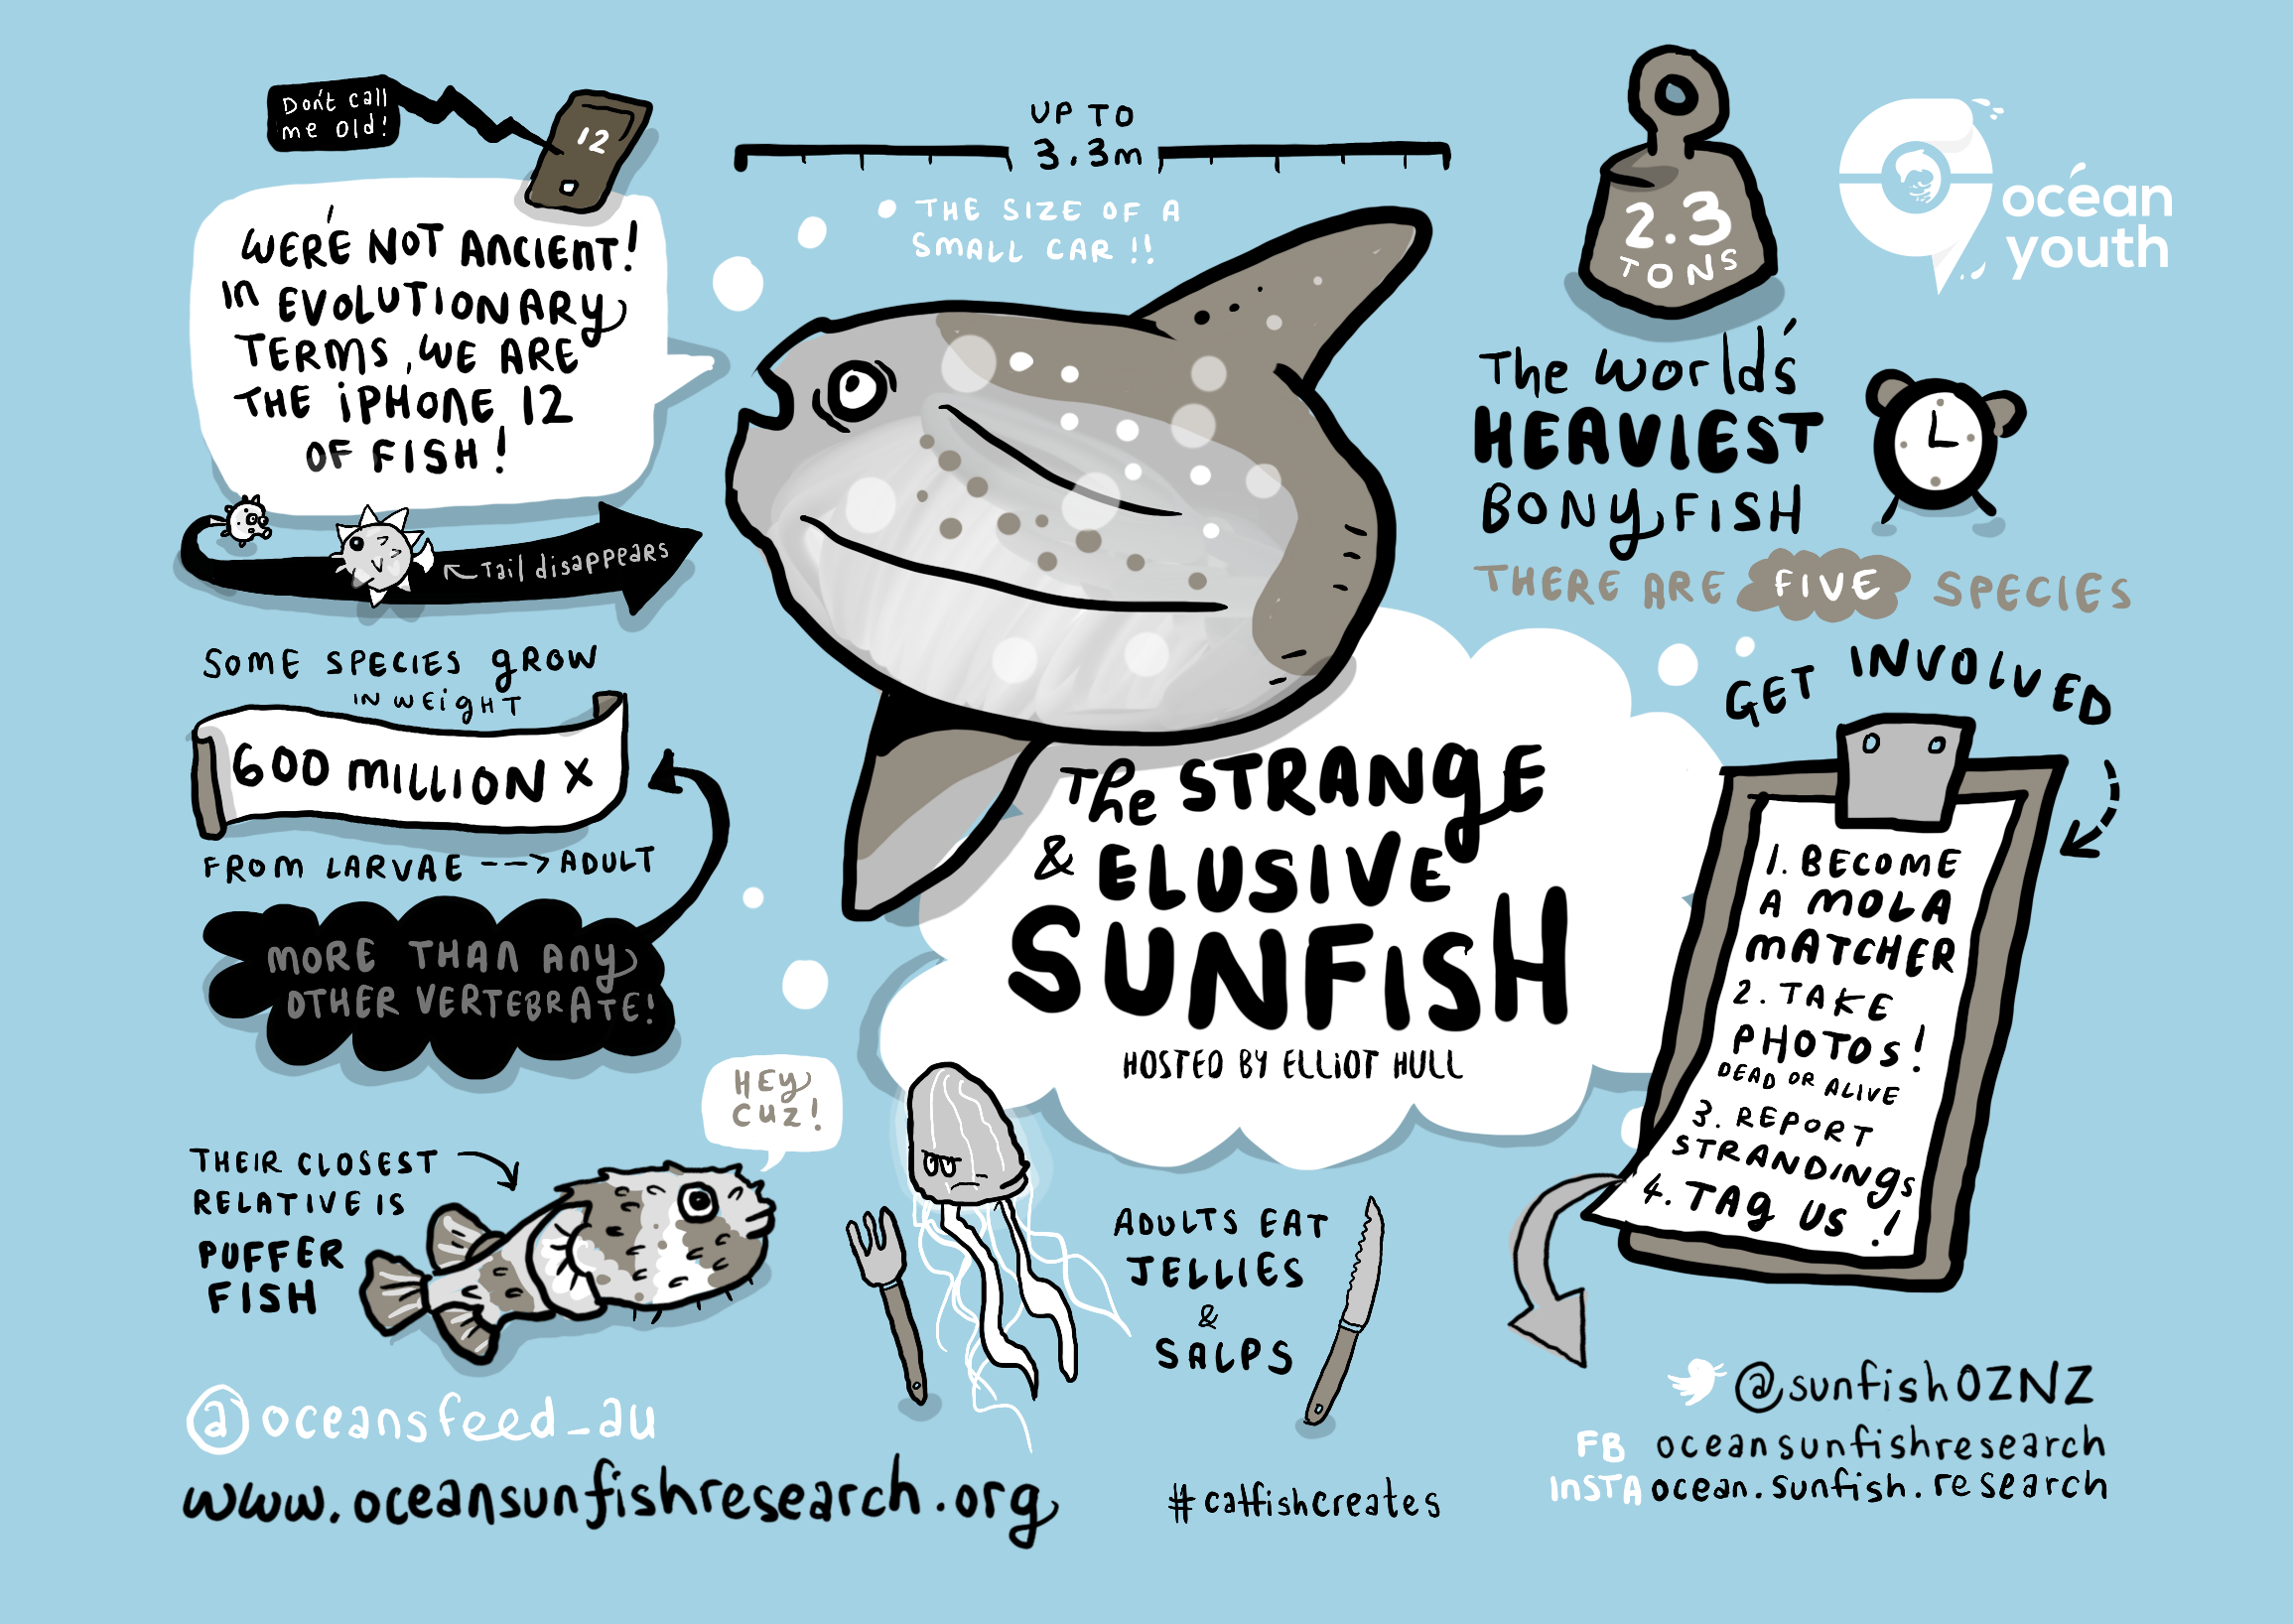 Don't call
me old!
12
WE'RE NOT ANCIENT!
In EVOLUTIONARY
TERMS, WE ARE
THE iPHONE 12
OF FISH!
UP TO
3.3m
THE SIZE OF A
SMALL CAR!!
2.3
TONS
océan
youth
The world's
HEAVIEST
BONY FISH
THERE ARE FIVE SPECIES
Tail disappears
SOME SPECIES gROW
IN WEigHT
600 MILLION X
FROM LARVAE ---> ADULT
MORE THAN ANY
OTHER VERTEBRATE!
The STRANgE
& ELUSIVE
SUNFISH
HOSTED BY ELLIOT HULL
GET INVOLVED
1. BECOME
A MOLA
MATCHER
2. TAKE
PHOTOS!
DEAD OR ALIVE
3. REPORT
STRANDINgS
4. TAg US!
HEY
CUZ!
THEIR CLOSEST
RELATIVE IS
PUFFER
FISH
ADULTS EAT
JELLIES
&
SALPS
@oceansfeed_au
www.oceansunfishresearch.org
#catfishcreates
@sunfishOZNZ
FB oceansunfishresearch
INSTA ocean.sunfish.research